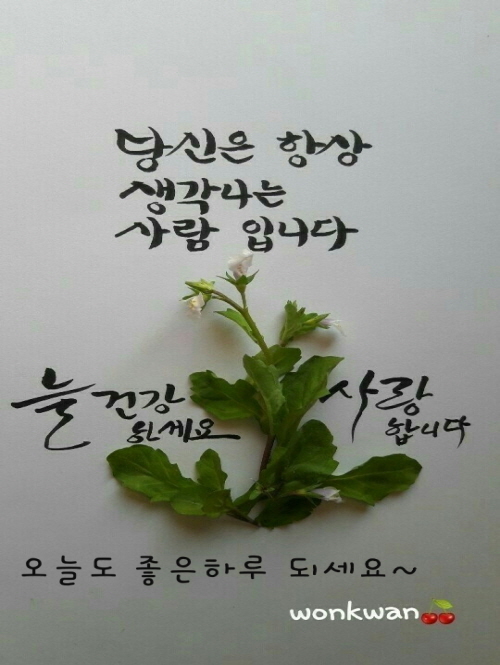 당신은 항상
생각나는
사람 입니다
늘 건강
하세요
사랑
합니다
오늘도 좋은하루 되세요~
wonkwan